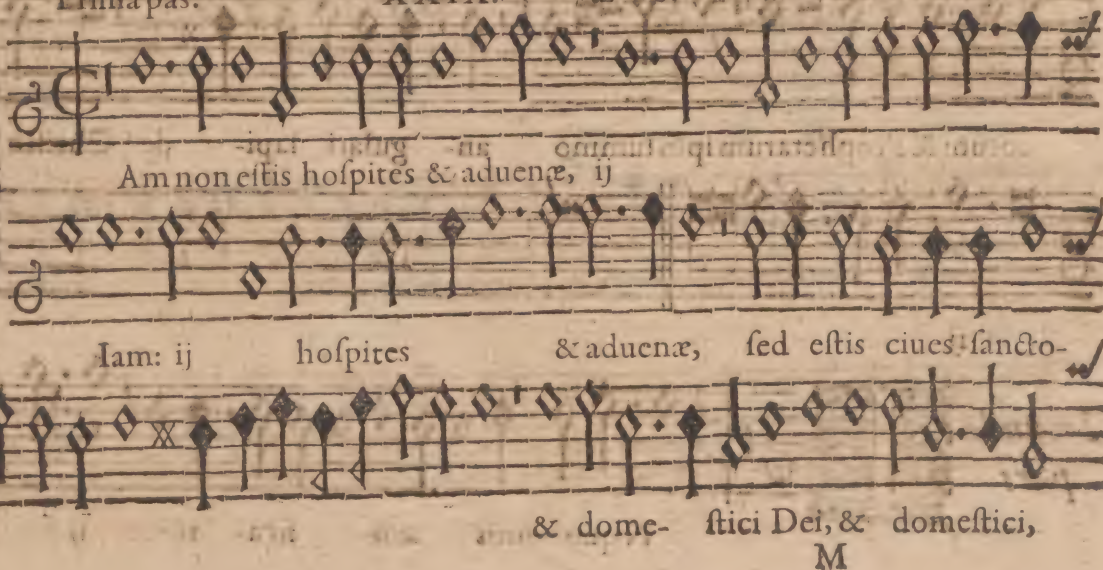 Am non eſtis hoſpites & aduenæ, ij
Iam: ij hoſpites & aduenæ, ſed eſtis ciues ſancto-
& dome- ſtici Dei, & domeſtici,
M